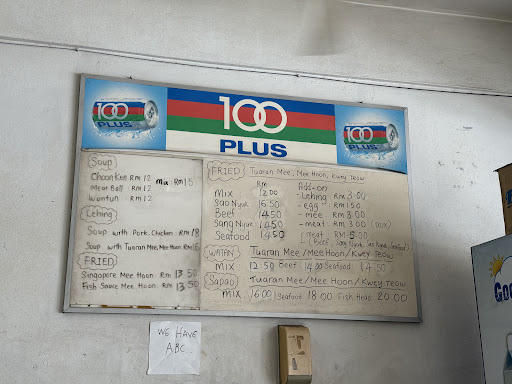 100
PLUS
100
PLUS
100
PLUS
Soup
Choon Ken RM 12 Mix RM 15
Meat Ball RM 12
Wantun RM 12
Lehing
Soup with Pork, Chicken RM 18
Soup with Tuaran Mee, Mee Hoon RM 18
FRIED
Singapore Mee Hoon RM 13.50
Fish Sauce Mee Hoon RM 13.50
FRIED Tuaran Mee, Mee Hoon, Kwey Teow
RM Add-on
Mix 12.00 - Lehing RM 3.00
Sao Nyuk 16.50 - egg RM 1.50
Beef 14.50 - mee RM 3.00
Sang Nyuk 14.50 - meat RM 3.00 (mix)
Seafood 14.50 meat RM 5.00
(Beef, Sang Nyuk, Sao Nyuk, Seafood)
WATAN Tuaran Mee/Mee Hoon/Kwey Teow
Mix 12.50 Beef 14.00 Seafood 14.50
Sapao Tuaran Mee/Mee Hoon/Kwey Teow
Mix 16.00 Seafood 18.00 Fish Head 20.00
WE HAVE
ABC